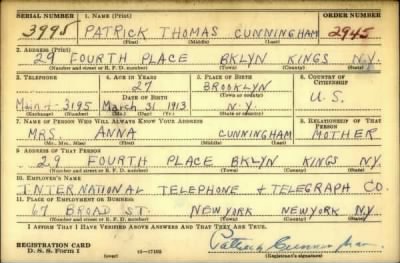 SERIAL NUMBER 1. NAME (Print) ORDER NUMBER
3995 PATRICK THOMAS CUNNINGHAM 2945
(First) (Middle) (Last)
2. ADDRESS (Print)
29 FOURTH PLACE BKLYN KINGS N.Y.
(Number and street or R. F. D. number) (Town) (County) (State)
3. TELEPHONE 4. AGE IN YEARS 5. PLACE OF BIRTH 6. COUNTRY OF CITIZENSHIP
27 BROOKLYN
DATE OF BIRTH (Town or county)
Main 4-3195 March 31, 1913 N.Y. U.S.
(Exchange) (Number) (Mo.) (Day) (Yr.) (State or country)
7. NAME OF PERSON WHO WILL ALWAYS KNOW YOUR ADDRESS 8. RELATIONSHIP OF THAT PERSON
MRS. ANNA CUNNINGHAM MOTHER
(Mr., Mrs., Miss) (First) (Middle) (Last)
9. ADDRESS OF THAT PERSON
29 FOURTH PLACE BKLYN KINGS N.Y.
(Number and street or R. F. D. number) (Town) (County) (State)
10. EMPLOYER'S NAME
INTERNATIONAL TELEPHONE + TELEGRAPH CO.
11. PLACE OF EMPLOYMENT OR BUSINESS
67 BROAD ST. NEW YORK NEW YORK N.Y.
(Number and street or R. F. D. number) (Town) (County) (State)
I AFFIRM THAT I HAVE VERIFIED ABOVE ANSWERS AND THAT THEY ARE TRUE.
REGISTRATION CARD
D. S. S. Form 1 (over) 16—17105 (Registrant's signature)
Patrick Cunningham